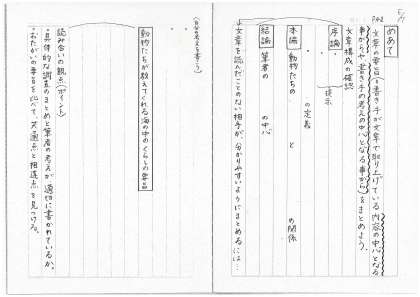 5/7
P42
めあて
文章の要旨(書き手が文章で取り上げている内容の中心となる
事がらや、書き手の考えの中心となる事がら)をまとめよう。
文章構成の確認
序論
・
・
提示
・
の定義
本論 動物たちの と の関係
結論 筆者の の中心
↓文章を読んだことのない相手が、分かりやすいようにまとめるには…
・
・
(自分の考えを書こう)
動物たちが教えてくれる海の中のくらしの要旨
読み合いの観点(ポイント)
・具体的な調査のまとめと筆者の考えが適切に書かれているか。
・おたがいの要旨を比べて、共通点と相違点を見つける。